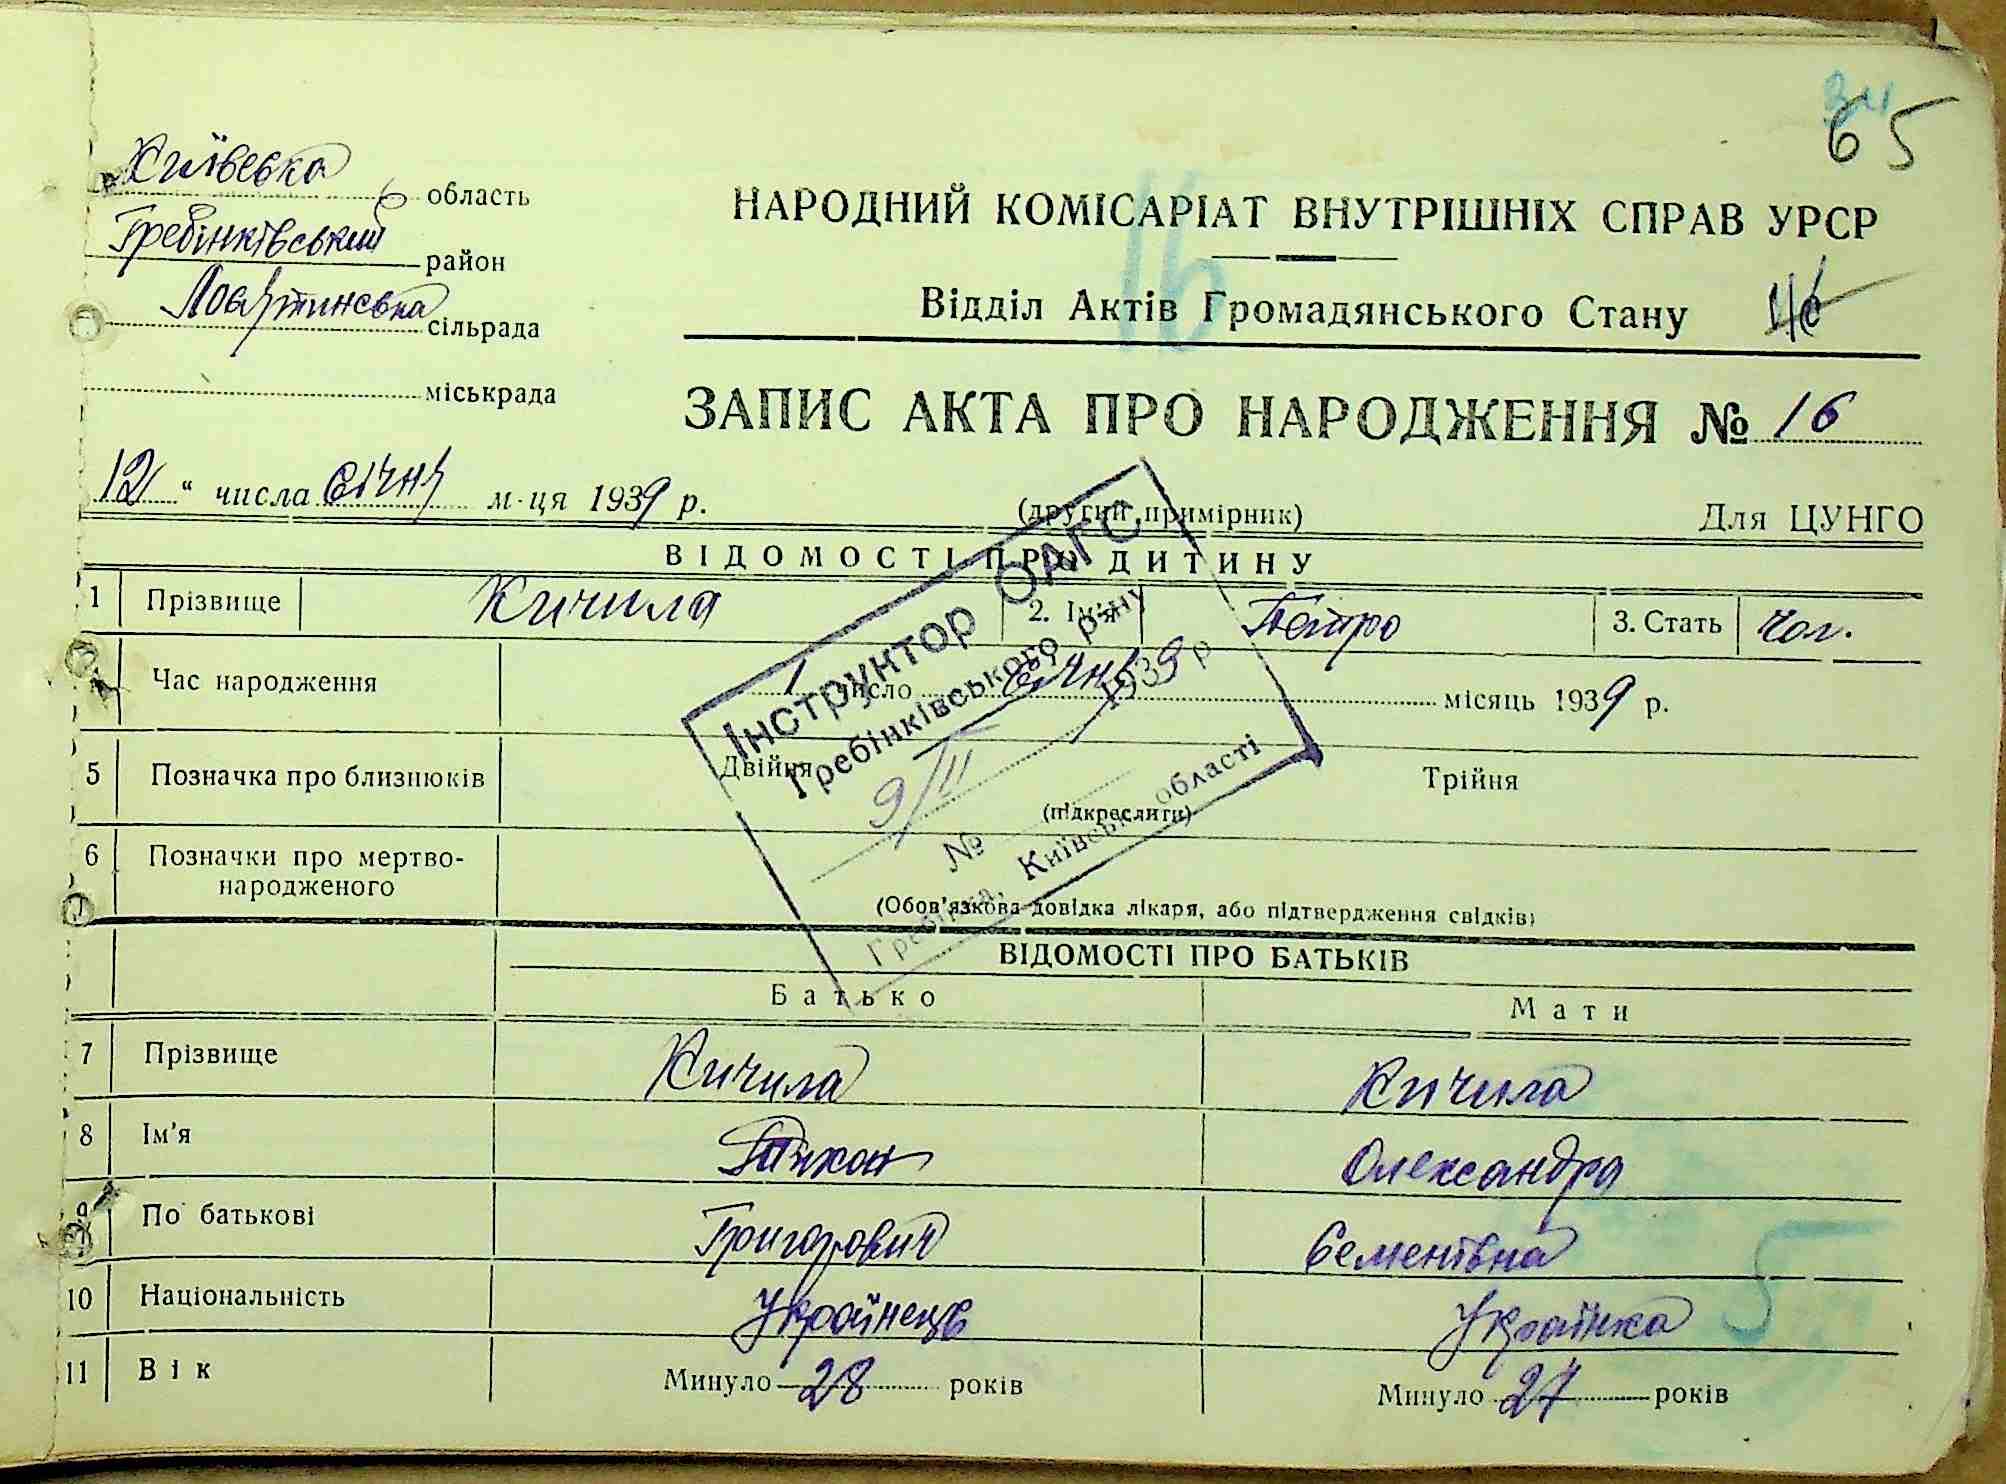 65
Київська область
Гребінківський район
Лосятинська сільрада
міськрада
НАРОДНИЙ КОМІСАРІАТ ВНУТРІШНІХ СПРАВ УРСР
16
Відділ Актів Громадянського Стану
ЗАПИС АКТА ПРО НАРОДЖЕННЯ № 16
12 " числа січня м-ця 1939 р.
(другий примірник)
Для ЦУНГО
ВІДОМОСТІ ПРО ДИТИНУ
1 Прізвище Кичила 2. Ім'я Петро 3. Стать чол.
Час народження 1 число січня місяць 1939 р.
5 Позначка про близнюків Двійня Трійня
(підкреслити)
6 Позначки про мертво-
народженого
(Обов'язкова довідка лікаря, або підтвердження свідків)
Інструктор ОАГС
Гребінківського р-ну
9/II 1939 р
№
Гребінка, Київськ. області
ВІДОМОСТІ ПРО БАТЬКІВ
Батько Мати
7 Прізвище Кичила Кичила
8 Ім'я Олександра
9 По батькові Григорович Семенівна
10 Національність Українець Українка
5
11 Вік Минуло 28 років Минуло 27 років